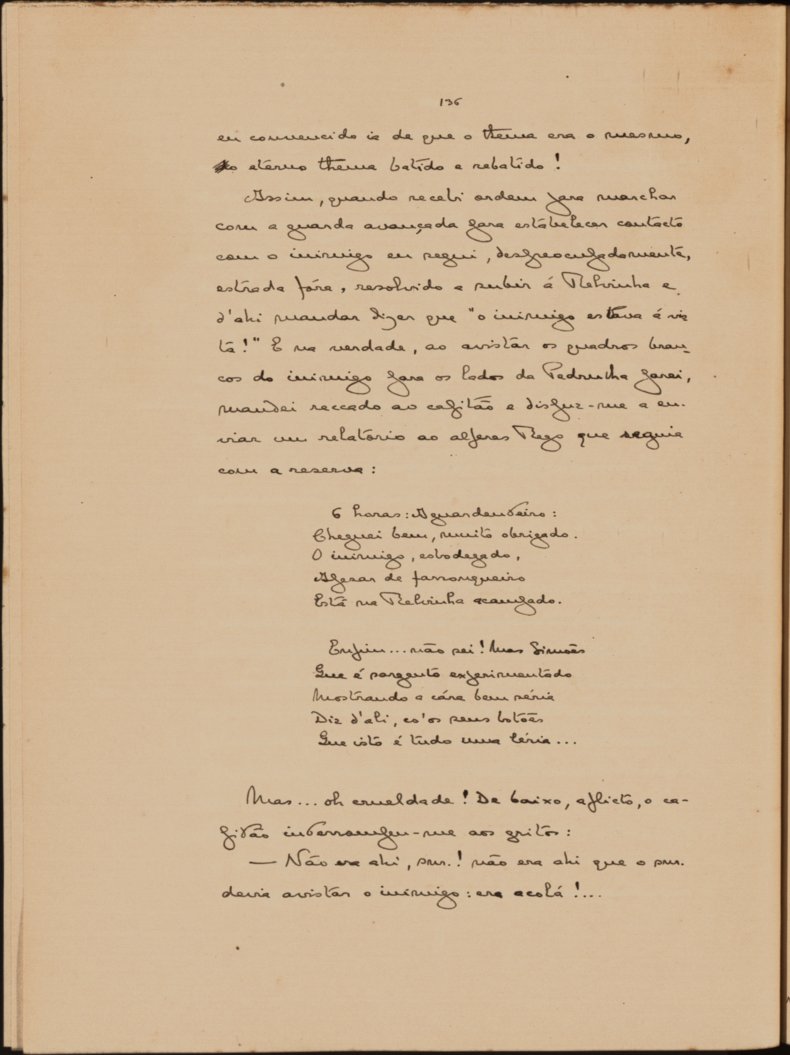 136
eu convencido ia de que o thema era o mesmo,
o eterno thema batido e rebatido!
Assim, quando recebi ordem para marchar
com a guarda avançada para estabelecer contacto
com o inimigo eu segui, despreocupadamente,
estrada fóra, resolvido a subir á Relvinha e
d'ahi mandar dizer que "o inimigo estava á vis
ta!" E na verdade, ao avistar os quadros bran-
cos do inimigo para os lados da Pedrulha parei,
mandei reccado ao capitão e dispuz-me a en-
viar um relatório ao alferes Rego que seguia
com a reserva:
6 horas: Aguardenteiro:
Cheguei bem, muito obrigado.
O inimigo, estodegado,
Apezar de farronqueiro
Está na Relvinha acampado.
Enfim... não sei! Mas Simões
Que é sargento experimentado
Mostrando a cára bem séria
Diz d'ahi, co'os seus botões
Que isto é tudo uma léria...
Mas... oh crueldade! De baixo, aflicto, o ca-
pitão interrompeu-me aos gritos:
— Não era ahi, snr.! não era ahi que o snr.
devia avistar o inimigo: era acolá!...